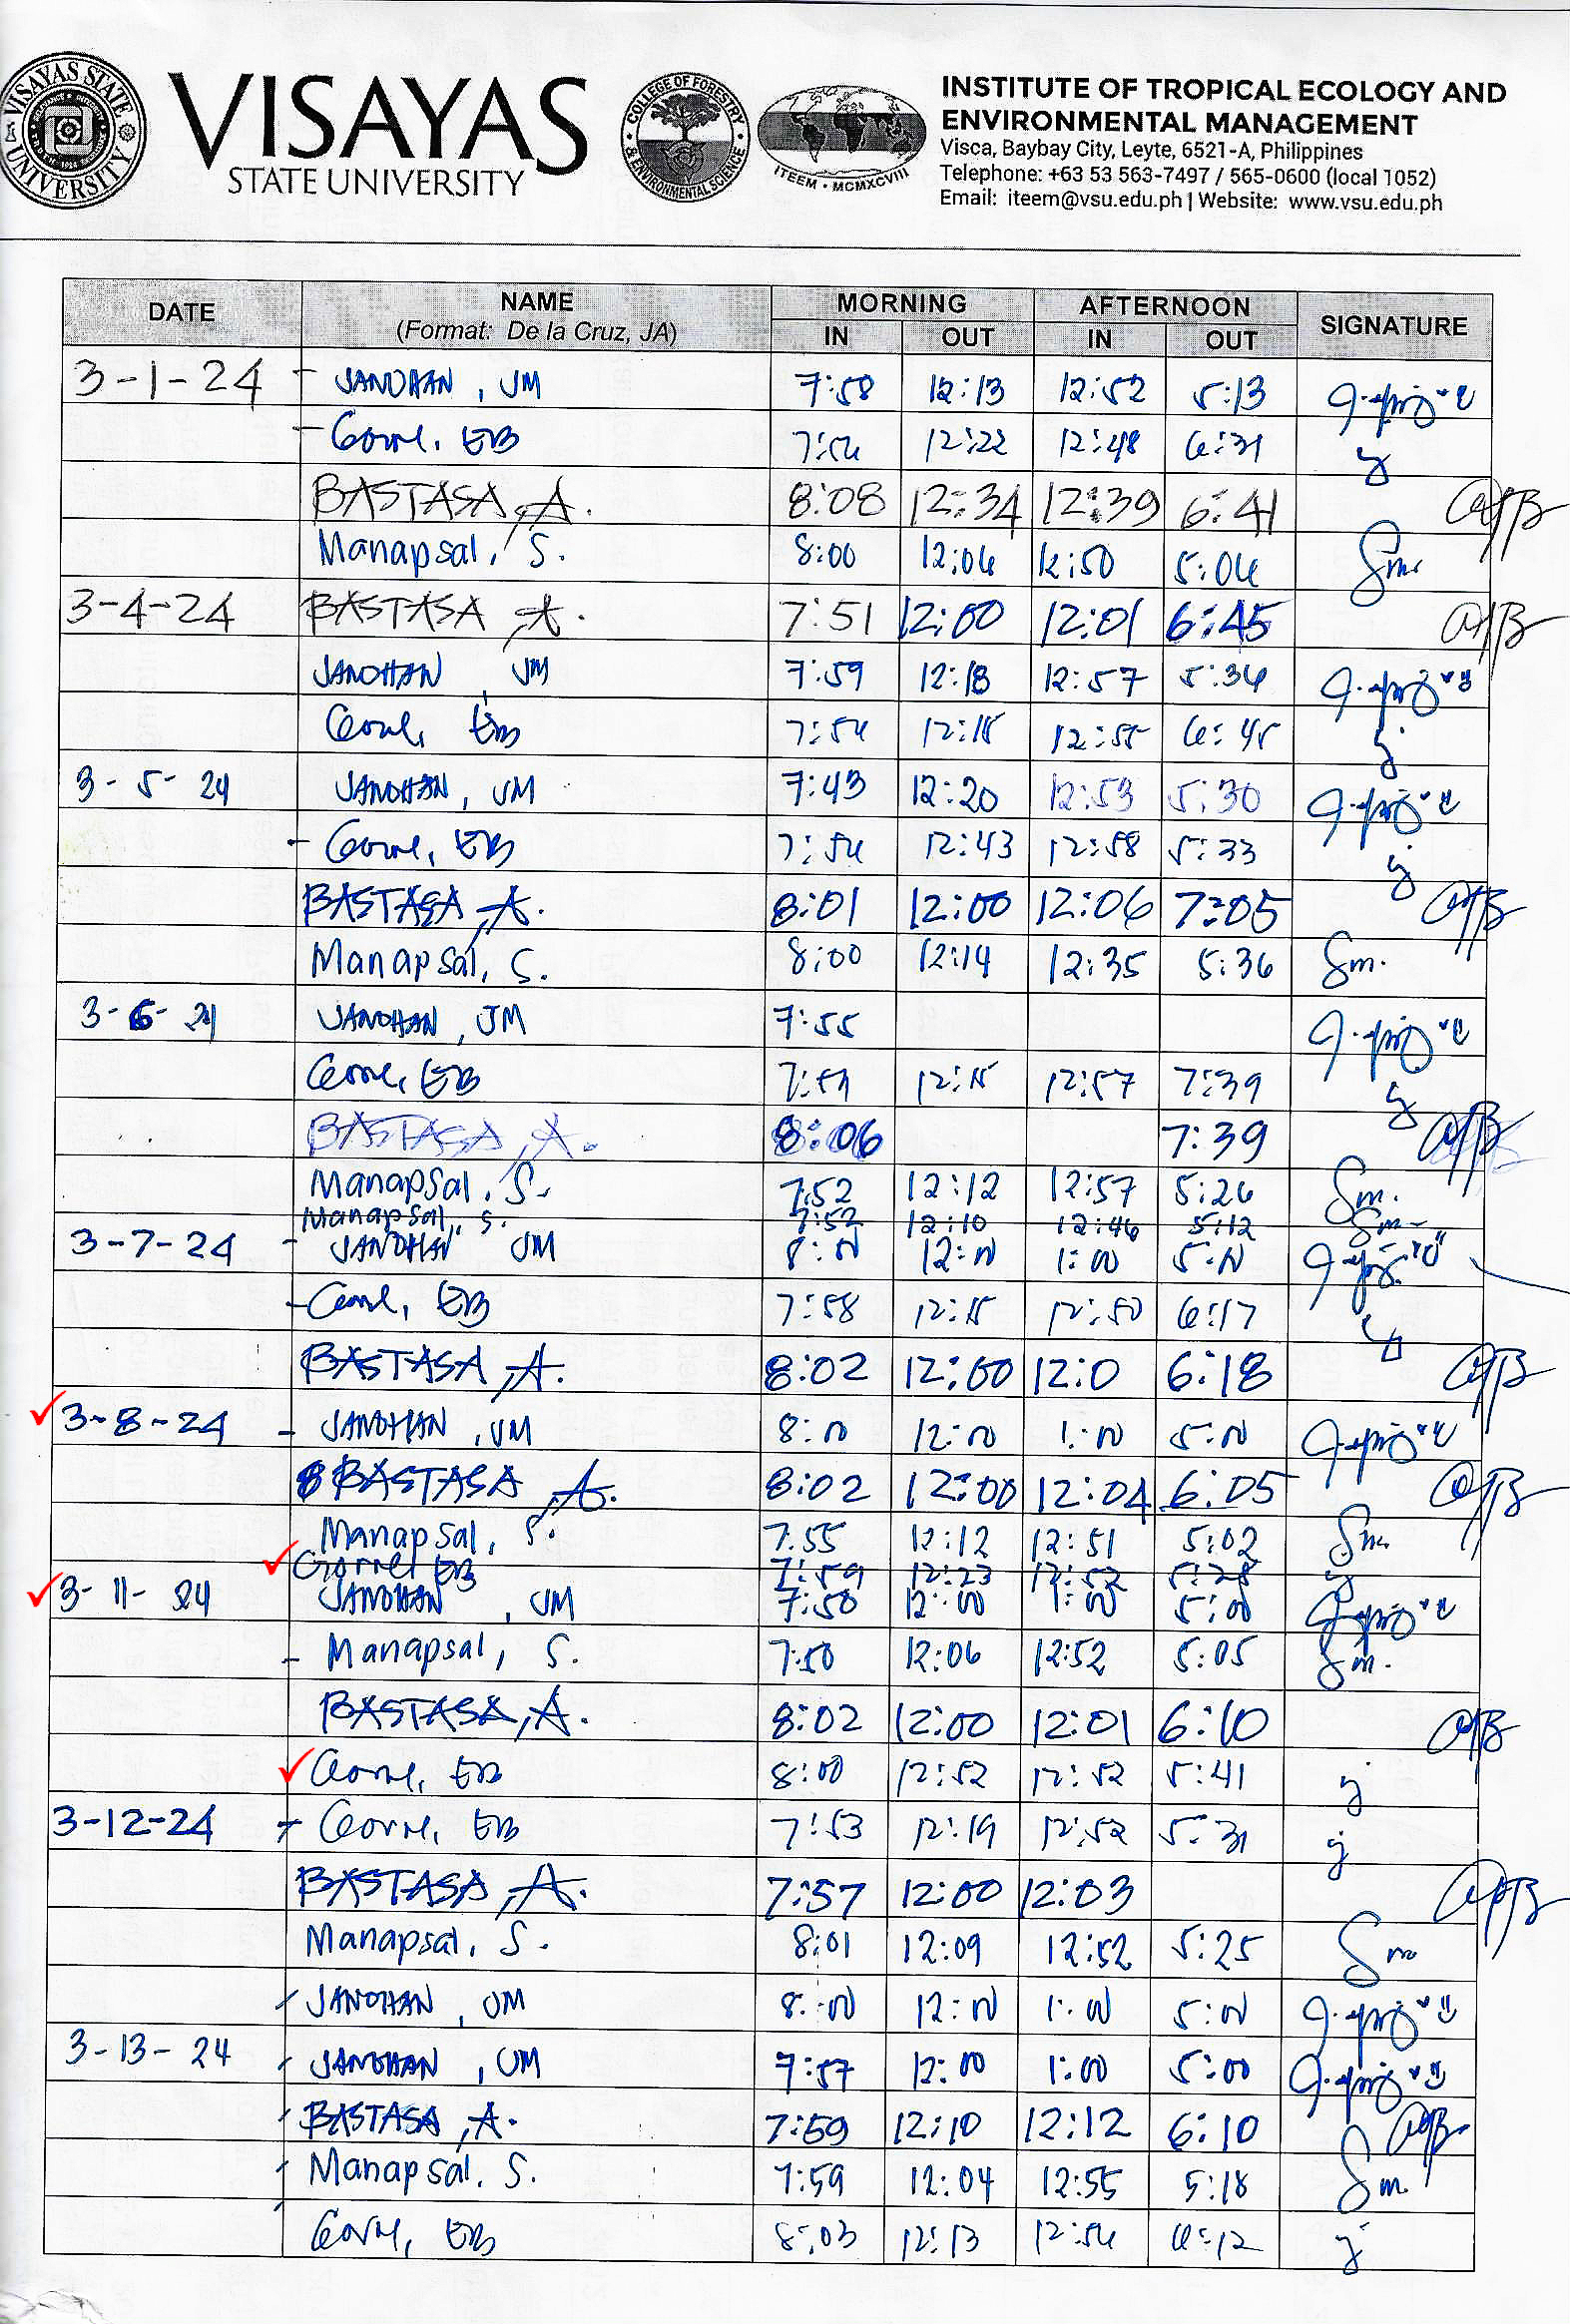 VISAYAS STATE UNIVERSITY
VISAYAS
STATE UNIVERSITY
COLLEGE OF FORESTRY & ENVIRONMENTAL SCIENCE
ITEEM • MCMXCVIII
INSTITUTE OF TROPICAL ECOLOGY AND
ENVIRONMENTAL MANAGEMENT
Visca, Baybay City, Leyte, 6521-A, Philippines
Telephone: +63 53 563-7497 / 565-0600 (local 1052)
Email: iteem@vsu.edu.ph | Website: www.vsu.edu.ph
DATE NAME MORNING AFTERNOON SIGNATURE
(Format: De la Cruz, JA) IN OUT IN OUT
3-1-24 - JANOHAN, JM 7:58 12:13 12:52 5:13
- EB 12:22 12:48 6:31
BASTASA, A. 8:08 12:34 12:39 6:41
Manapsal, S. 8:00 12:06 12:50 5:06 Sm.
3-4-24 BASTASA, A. 7:51 12:00 12:01 6:45
JANOHAN, JM 7:59 12:18 12:57 5:36
EB 12:15 12:55 6:45
3-5-24 JANOHAN, JM 7:43 12:20 12:53 5:30
- EB 12:43 12:58 5:33
BASTASA, A. 8:01 12:00 12:06 7:05
Manapsal, S. 8:00 12:14 12:35 5:36 Sm.
3-6-24 JANOHAN, JM 7:55
EB 7:59 12:15 12:57 7:39
BASTASA, A. 8:06 7:39
Manapsal, S. 7:52 12:12 12:57 5:26 Sm.
Manapsal, S. 7:52 12:10 12:46 5:12 Sm.
3-7-24 - JANOHAN JM 8:00 12:00 1:00 5:00
- EB 7:58 12:15 12:50 6:17
BASTASA, A. 8:02 12:00 12:0 6:18
3-8-24 - JANOHAN, JM 8:00 12:00 1:00 5:00
BASTASA, A. 8:02 12:00 12:04 6:05
Manapsal, S. 7:55 12:12 12:51 5:02 Sm.
EB 7:59 12:23 12:52 5:28
3-11-24 JANOHAN, JM 7:58 12:00 1:00 5:00
- Manapsal, S. 7:50 12:06 12:52 5:05 Sm.
BASTASA, A. 8:02 12:00 12:01 6:10
EB 8:00 12:52 12:52 5:41
3-12-24 - EB 7:53 12:19 12:52 5:31
BASTASA, A. 7:57 12:00 12:03
Manapsal, S. 8:01 12:09 12:52 5:25 Sm
JANOHAN, JM 8:00 12:00 1:00 5:00
3-13-24 JANOHAN, JM 7:57 12:00 1:00 5:00
BASTASA, A. 7:59 12:10 12:12 6:10
Manapsal, S. 7:59 12:04 12:55 5:18 Sm.
EB 8:03 12:13 12:56 6:12